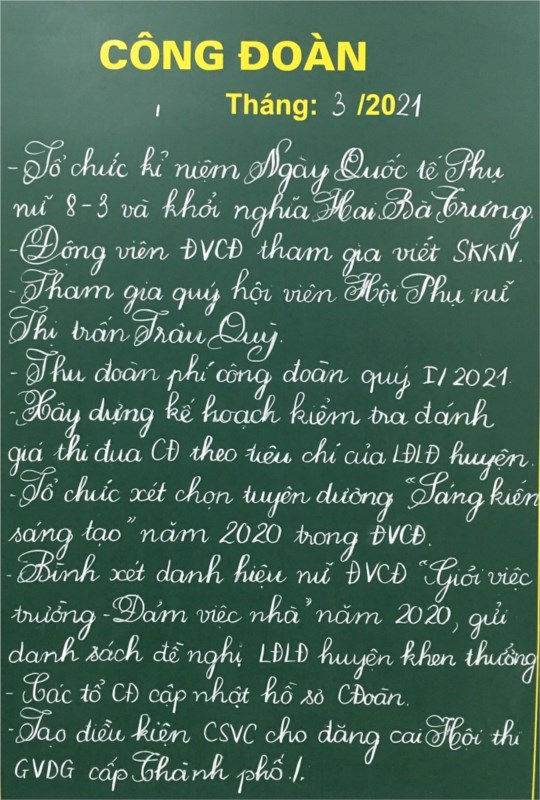 CÔNG ĐOÀN
Tháng: 3 /2021
- Tổ chức kỉ niệm Ngày Quốc tế Phụ
nữ 8-3 và khởi nghĩa Hai Bà Trưng.
- Động viên ĐVCĐ tham gia viết SKKN.
- Tham gia quý hội viên Hội Phụ nữ
Thị trấn Trâu Quỳ.
- Thu đoàn phí công đoàn quý I/2021.
- Xây dựng kế hoạch kiểm tra đánh
giá thi đua CĐ theo tiêu chí của LĐLĐ huyện.
- Tổ chức xét chọn tuyên dương "Sáng kiến
sáng tạo" năm 2020 trong ĐVCĐ.
- Bình xét danh hiệu nữ ĐVCĐ "Giỏi việc
trường - Đảm việc nhà" năm 2020, gửi
danh sách đề nghị LĐLĐ huyện khen thưởng
- Các tổ CĐ cập nhật hồ sơ CĐoàn.
- Tạo điều kiện CSVC cho đăng cai Hội thi
GVDG cấp Thành phố ./.